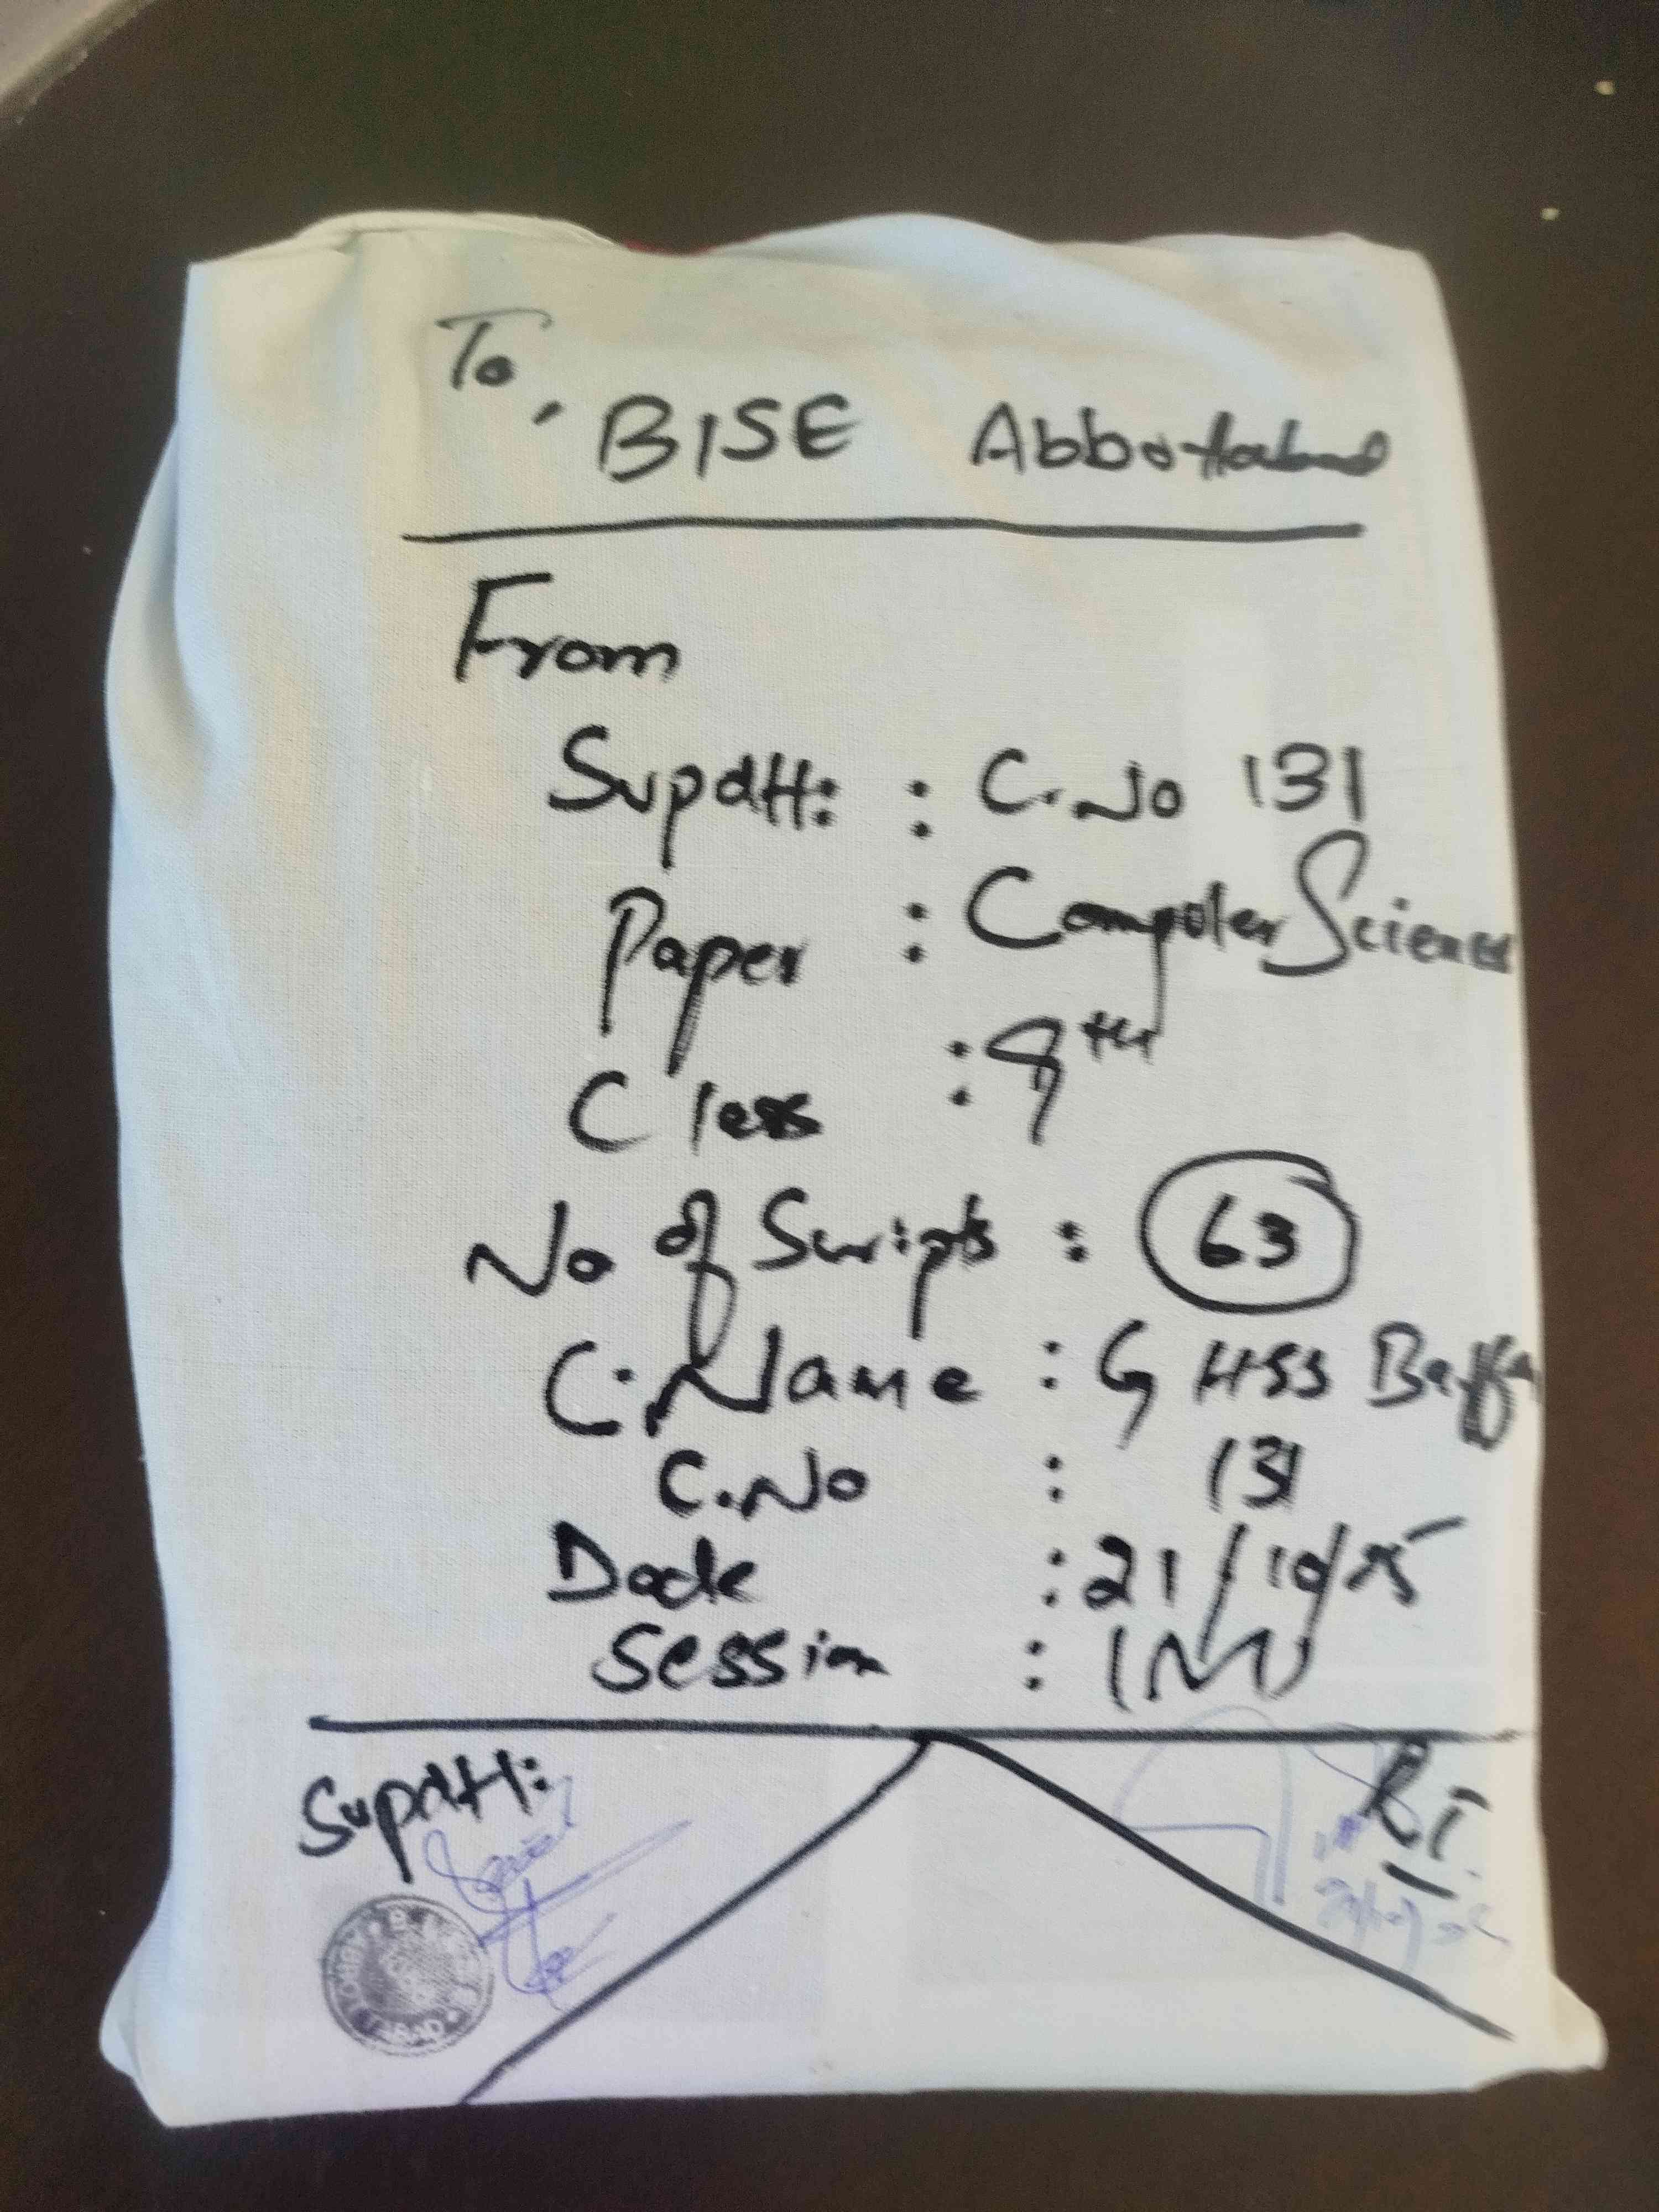 To,
BISE Abbottabad
From
Supdtt: : C.No 131
Paper : Computer Science
Class : 9th
No of Scripts : 63
C.Name : GHSS Baffa
C.No : 131
Date : 21/10/25
Session :
Supdtt:
RI